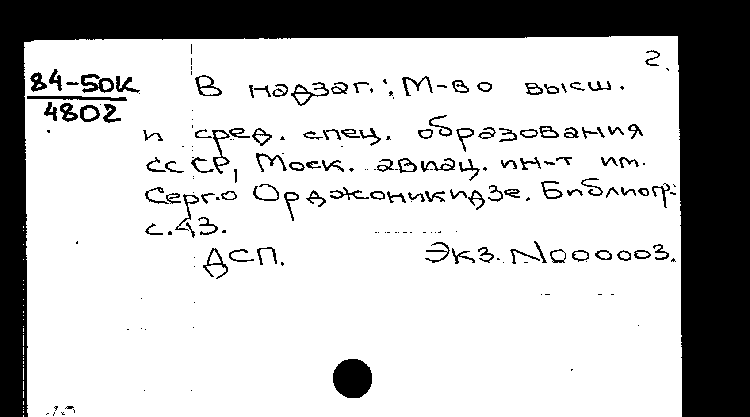 2.
84-50к
4802
В надзаг.: М-во высш.
и сред. спец. образования
СССР, Моск. авиац. ин-т им.
Серго Орджоникидзе. Библиогр.:
с.43.
ДСП. Экз. N000003.